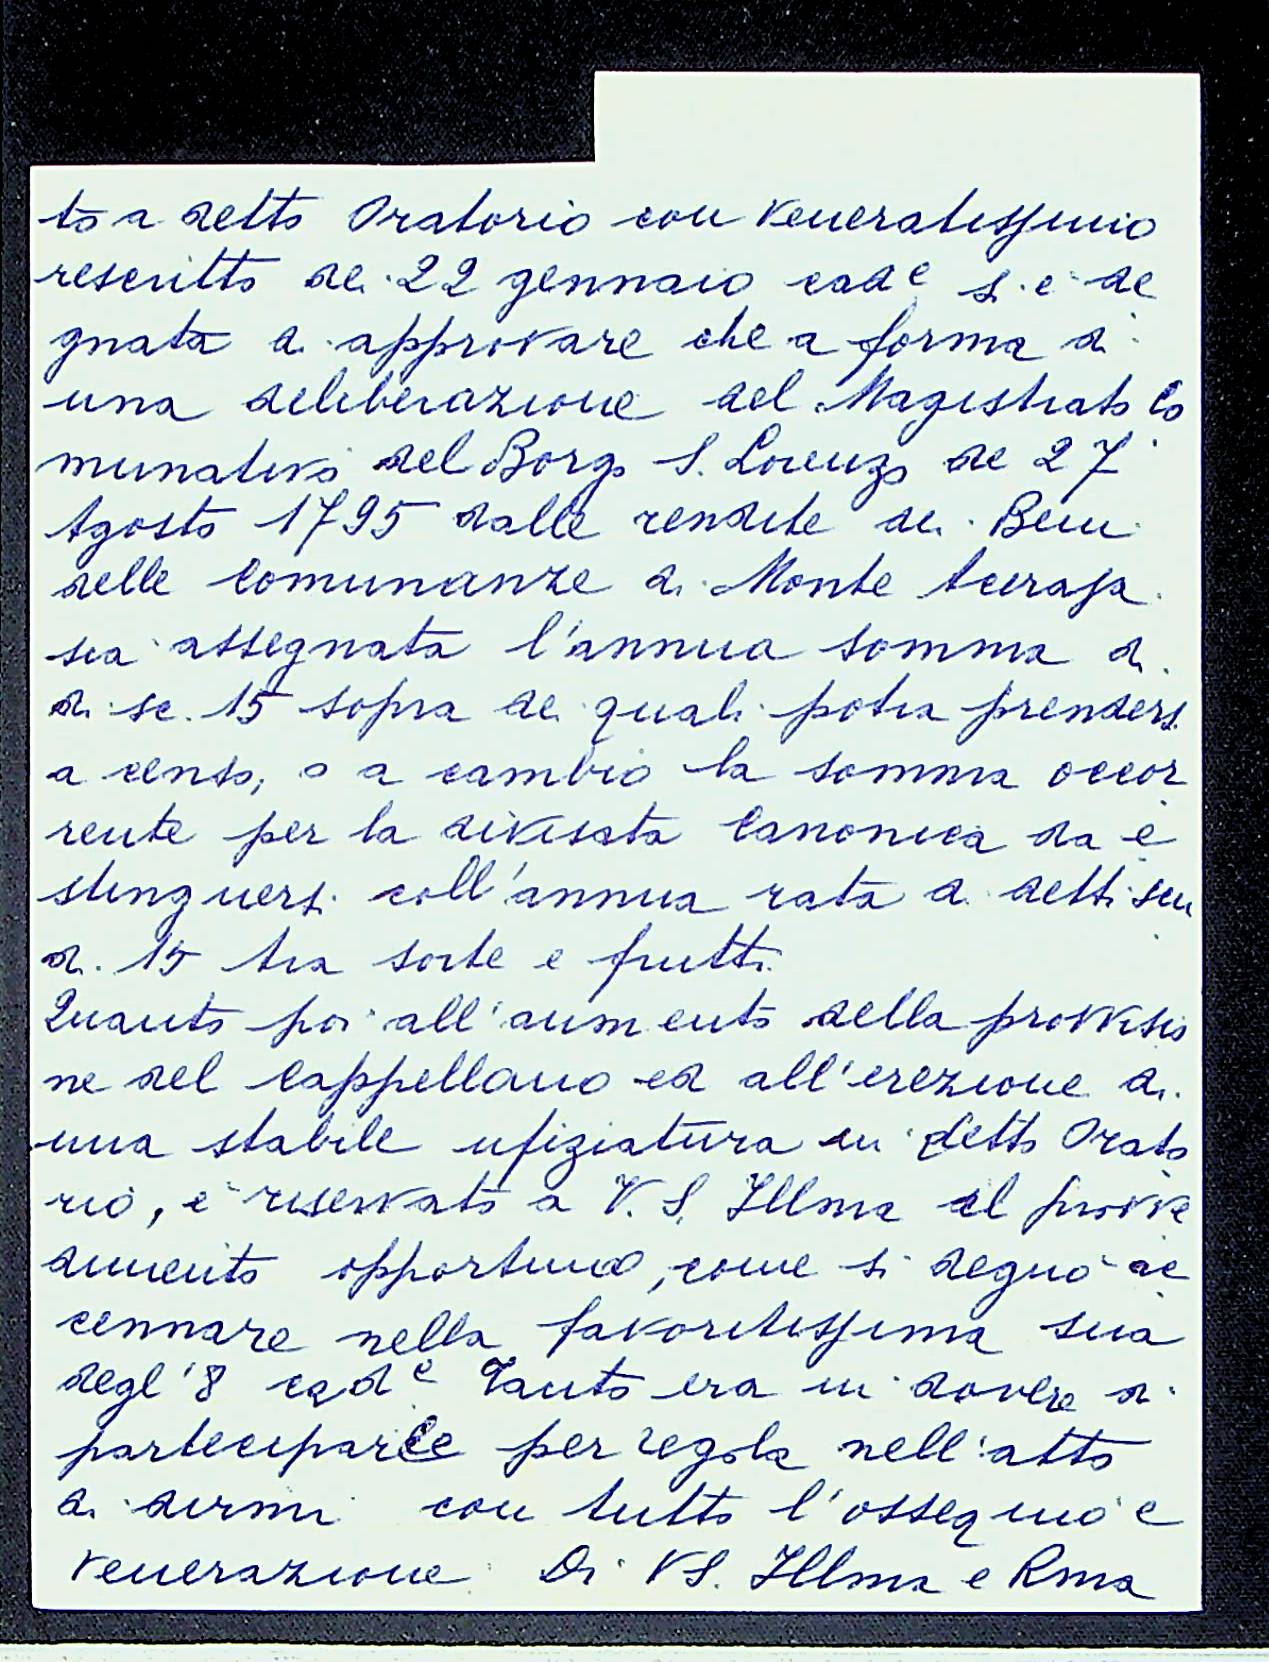 to a detto Oratorio con veneratissimo
rescritto de 22 gennaio cad.e si è de
gnata di approvare che a forma di
una deliberazione del Magistrato Co
munativo del Borgo S. Lorenzo de 27
Agosto 1795 dalle rendite dei Beni
delle Comunanze di Monte Aceraja
sia assegnata l'annua somma di
di sc. 15 sopra de quali potra prendersi
a censo, o a cambio la somma occor
rente per la divisata Canonica da e
stinguersi coll'annua rata di detti scu
di 15 tra sorte e frutti.
Quanto poi all'aumento della provvisio
ne del Cappellano ed all'erezione di
una stabile ufiziatura in detto Orato
rio, è riservato a V. S. Illma il provve
dimento opportuno, come si degnò ac
cennare nella favoritissima sua
degl'8 cad.e Tanto era in dovere di
parteciparle per regola nell'atto
di dirmi con tutto l'ossequio e
venerazione Di VS. Illma e Rma